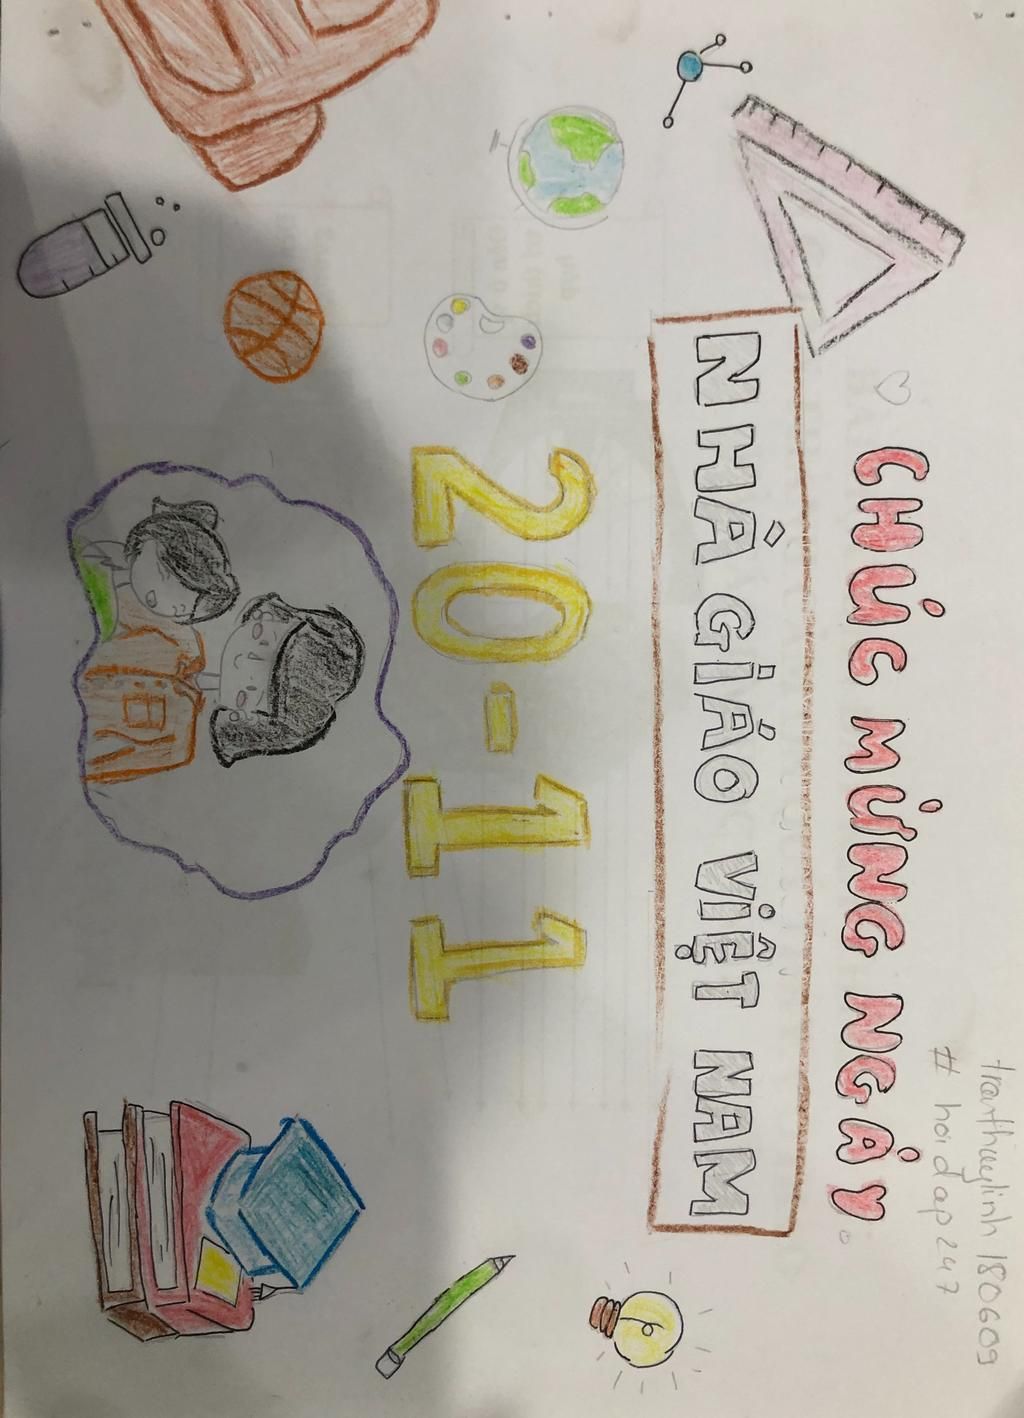 tranthuylinh180609
# hoidap247
CHÚC MỪNG NGÀY
NHÀ GIÁO VIỆT NAM
20-11